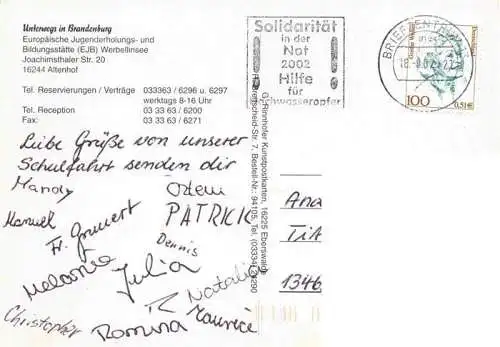 Unterwegs in Brandenburg
Europäische Jugenderholungs- und
Bildungsstätte (EJB) Werbellinsee
Joachimsthaler Str. 20
16244 Altenhof
Tel. Reservierungen / Verträge 033363 / 6296 u. 6297
werktags 8-16 Uhr
Tel. Reception 03 33 63 / 6200
Fax: 03 33 63 / 6271
Solidarität
in der
Not
2002
Hilfe
für
Hochwasseropfer
BRIEFZENTRUM
100
0,51€
Liebe Grüße von unserer
Schulfahrt senden dir
Mandy
Manuel
PATRICK
Dennis
Melanie
Julia
Natalie
Maurice
Christopher
Romina
Kunstpostkarten, 16225 Eberswalde
7, Bestell-Nr.: 94105, Tel. (03334)
Ana
1346